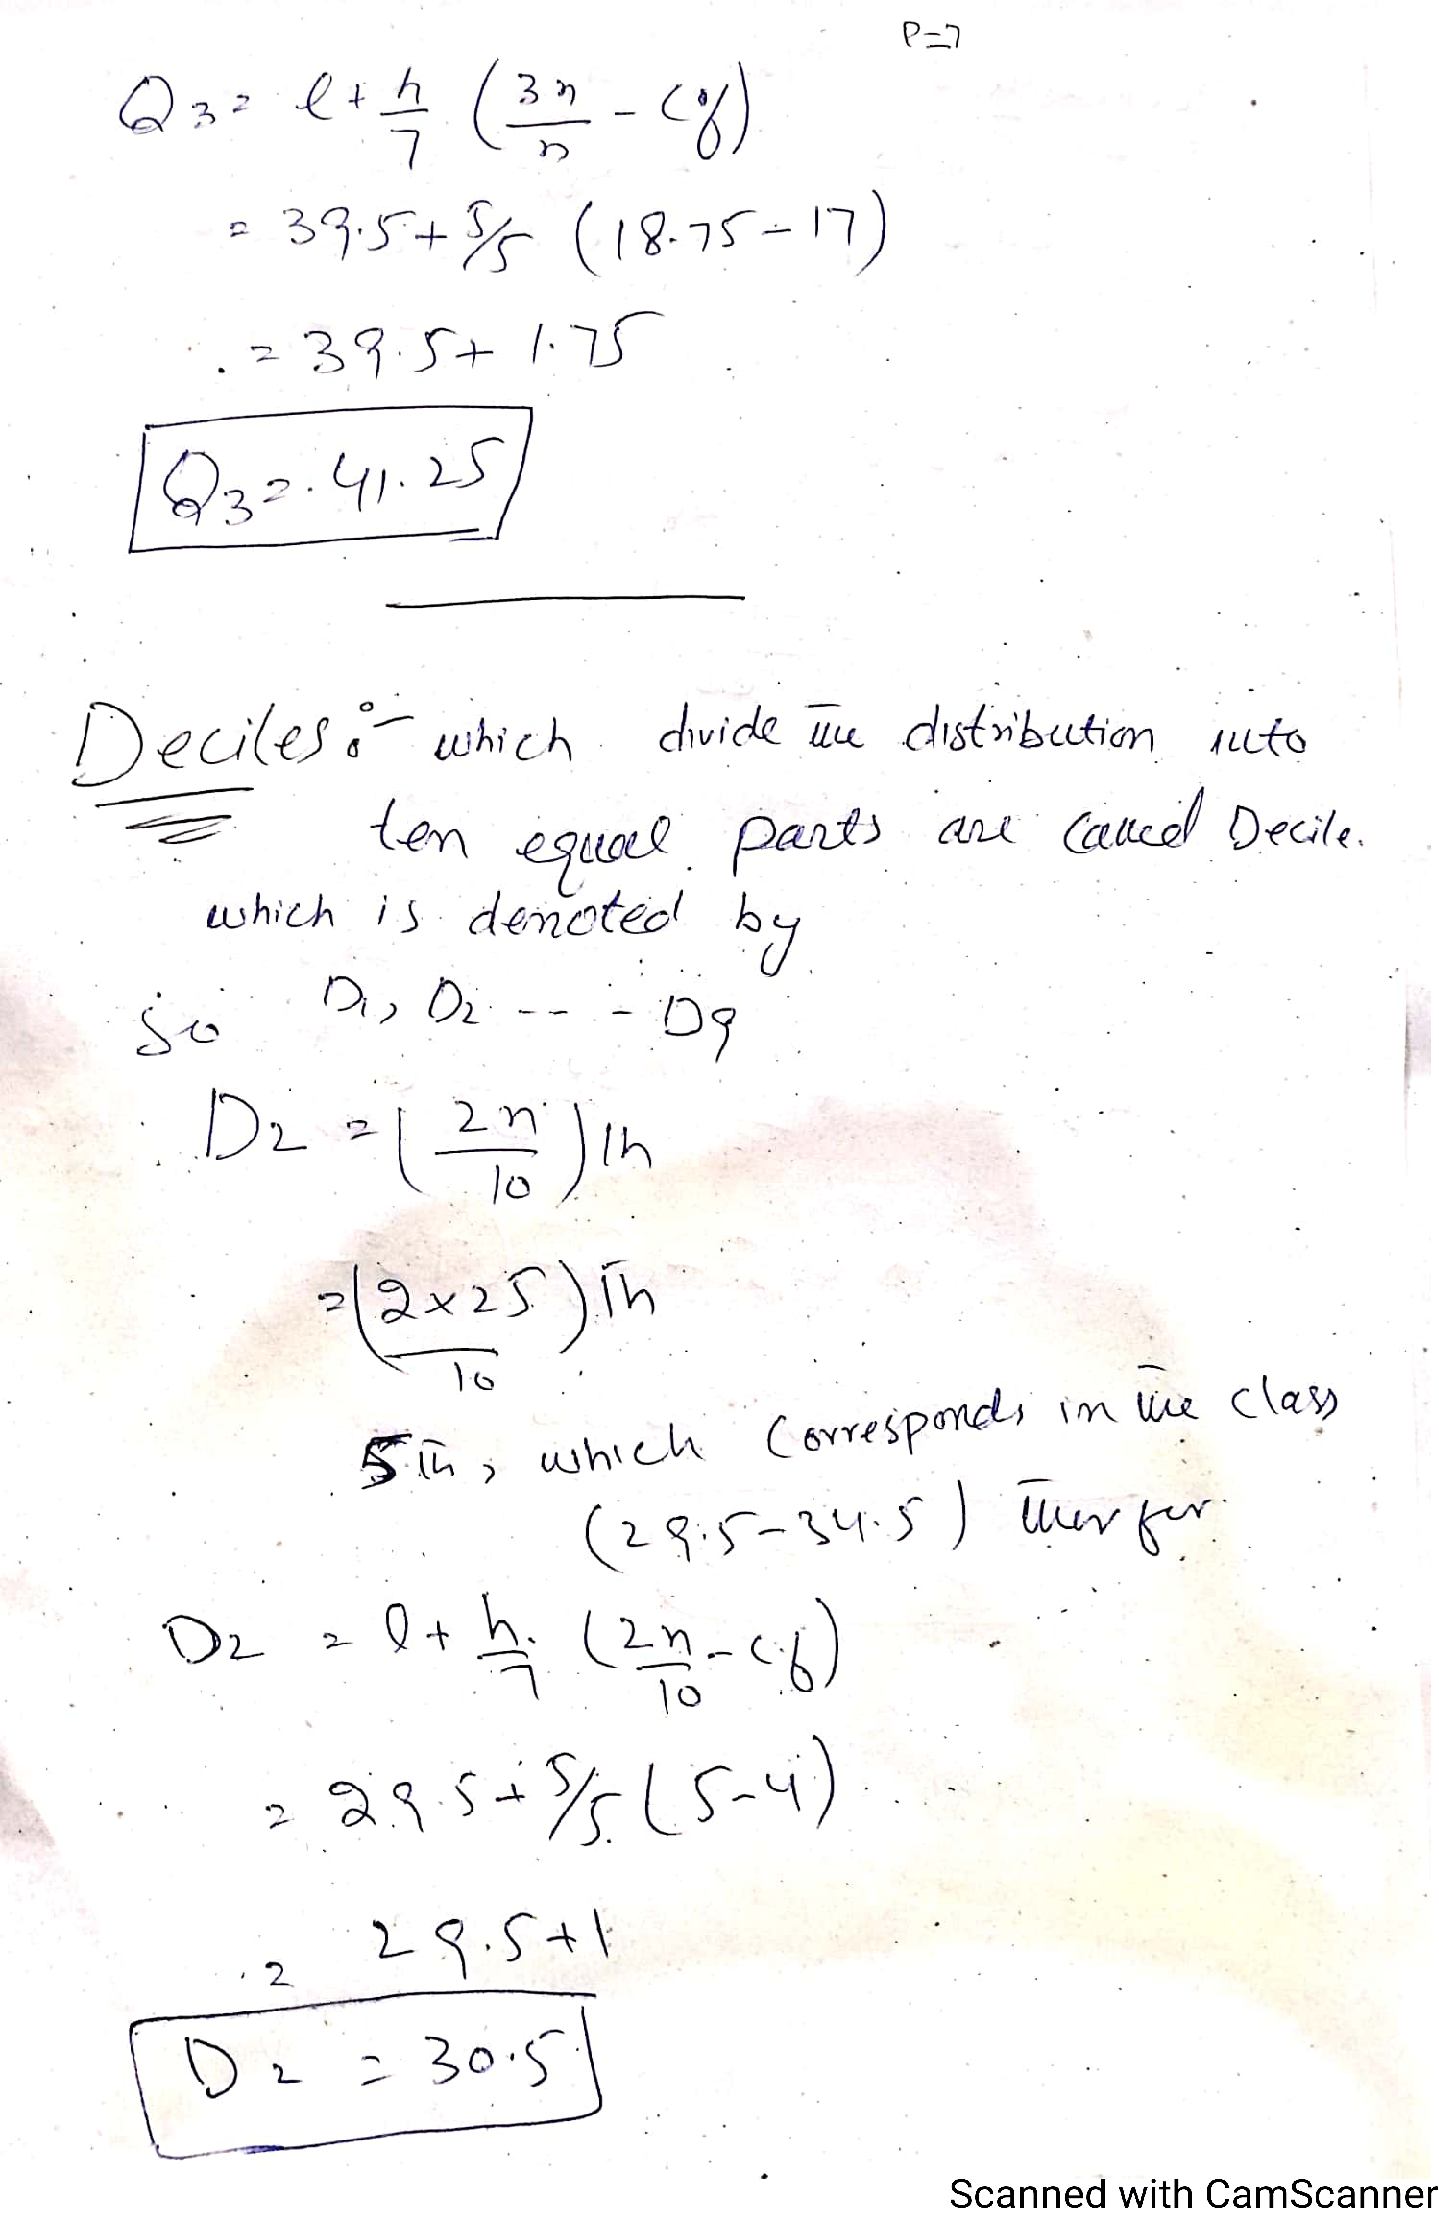 P=7
Q3 = l + h/7 (3n/n - cf)
= 39.5 + 5/5 (18.75 - 17)
= 39.5 + 1.75
Q3 = 41.25
Deciles :- which divide the distribution into
ten equal parts are called Decile.
which is denoted by
so D1, D2 --- D9
D2 = (2n/10)th
= (2x25/10)th
5th, which corresponds in the class
(29.5-34.5) therfor
D2 = l + h/7 (2n/10 - cf)
= 29.5 + 5/5 (5-4)
= 29.5 + 1
D2 = 30.5
Scanned with CamScanner